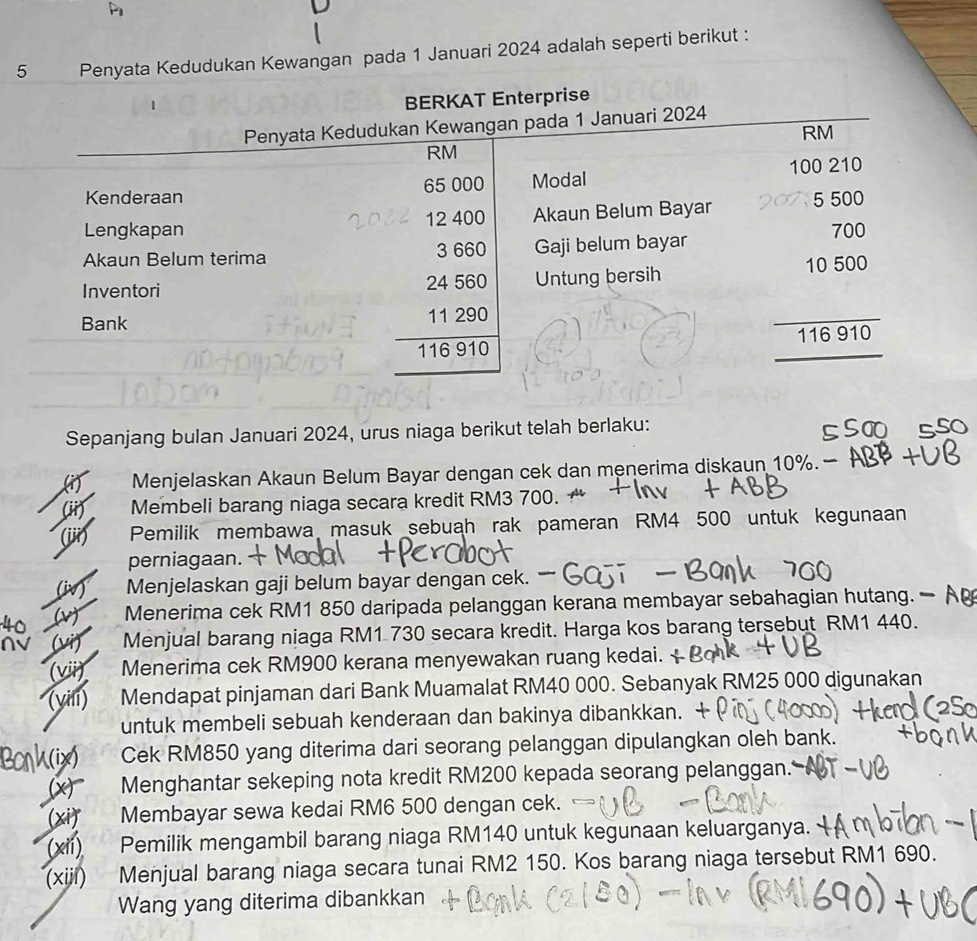 5 Penyata Kedudukan Kewangan pada 1 Januari 2024 adalah seperti berikut :
BERKAT Enterprise
Penyata Kedudukan Kewangan pada 1 Januari 2024
RM RM
Kenderaan 65 000 Modal 100 210
Lengkapan 2022 12 400 Akaun Belum Bayar 5 500
Akaun Belum terima 3 660 Gaji belum bayar 700
Inventori 24 560 Untung bersih 10 500
Bank 11 290
116 910 116 910
Sepanjang bulan Januari 2024, urus niaga berikut telah berlaku:
5500 550
(i) Menjelaskan Akaun Belum Bayar dengan cek dan menerima diskaun 10%. - ABB +UB
(ii) Membeli barang niaga secara kredit RM3 700. + Inv + ABB
(iii) Pemilik membawa masuk sebuah rak pameran RM4 500 untuk kegunaan
perniagaan. + Modal + Perabot
(iv) Menjelaskan gaji belum bayar dengan cek. - Gaji - Bank 700
(v) Menerima cek RM1 850 daripada pelanggan kerana membayar sebahagian hutang. -
40
nv (vi) Menjual barang niaga RM1 730 secara kredit. Harga kos barang tersebut RM1 440.
(vii) Menerima cek RM900 kerana menyewakan ruang kedai. + Bank + UB
(viii) Mendapat pinjaman dari Bank Muamalat RM40 000. Sebanyak RM25 000 digunakan
untuk membeli sebuah kenderaan dan bakinya dibankkan. + Pinj (40000) +kend (250
+bank
Bank (ix) Cek RM850 yang diterima dari seorang pelanggan dipulangkan oleh bank.
(x) Menghantar sekeping nota kredit RM200 kepada seorang pelanggan. - ABT - UB
(xi) Membayar sewa kedai RM6 500 dengan cek. - UB - Bank
(xii) Pemilik mengambil barang niaga RM140 untuk kegunaan keluarganya. + Ambilan -
(xiii) Menjual barang niaga secara tunai RM2 150. Kos barang niaga tersebut RM1 690.
Wang yang diterima dibankkan + Bank (2150) - Inv (RM1690) + UB (